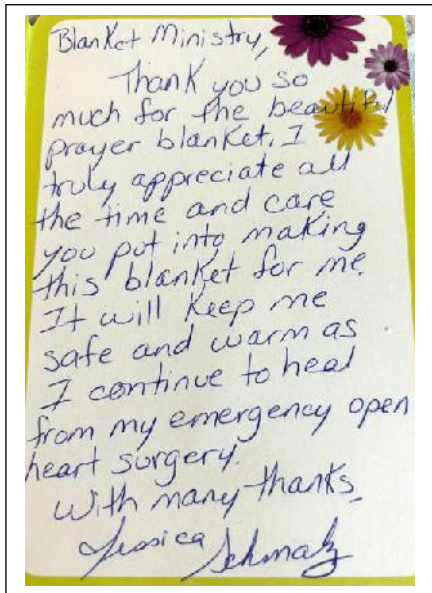 Blanket Ministry,
Thank you so
much for the beautiful
prayer blanket. I
truly appreciate all
the time and care
you put into making
this blanket for me.
It will keep me
safe and warm as
I continue to heal
from my emergency open
heart surgery.
With many thanks,
Jessica Schmalz